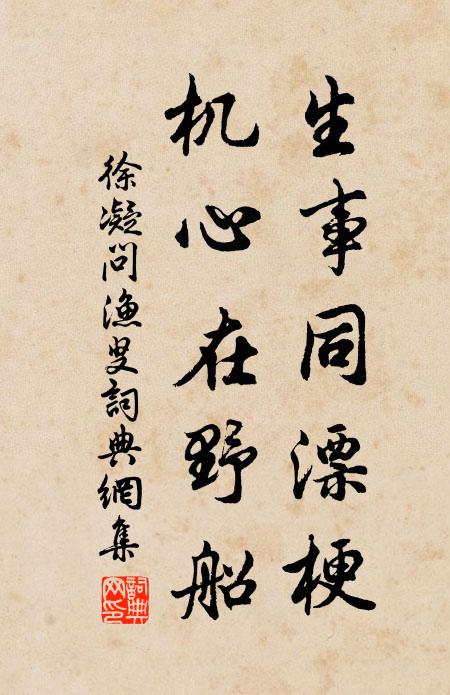 生事同漂梗
机心在野船
徐凝问渔叟詞典網集
詞典網印